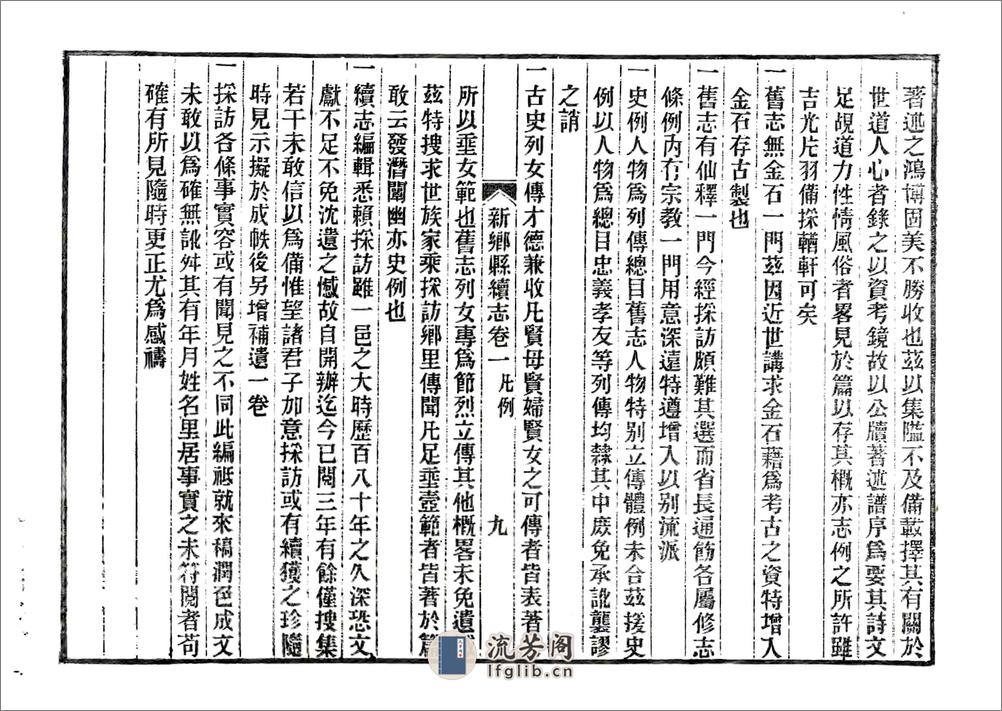 著述之鴻博固美不勝收也茲以集隘不及備載擇其有關於
世道人心者錄之以資考鏡故以公牘著述譜序爲要其詩文
足覘道力性情風俗者畧見於篇以存其概亦志例之所許雖
吉光片羽備採輶軒可矣
一舊志無金石一門茲因近世講求金石藉爲考古之資特增入
金石存古製也
一舊志有仙釋一門今經採訪頗難其選而省長通飭各屬修志
條例內有宗教一門用意深遠特遵增入以别流派
一史例人物爲列傳總目舊志人物特别立傳體例未合茲援史
例以人物爲總目忠義孝友等列傳均隸其中庶免承訛襲謬
之誚
一古史列女傳才德兼收凡賢母賢婦賢女之可傳者皆表著
新鄉縣續志卷一 凡例 九
所以垂女範也舊志列女專爲節烈立傳其他概畧未免遺
茲特搜求世族家乘採訪鄉里傳聞凡足垂壼範者皆著於篇
敢云發潛闡幽亦史例也
一續志編輯悉賴採訪雖一邑之大時歷百八十年之久深恐文
獻不足不免沈遺之憾故自開辦迄今已閱三年有餘僅搜集
若干未敢信以爲備惟望諸君子加意採訪或有續獲之珍隨
時見示擬於成帙後另增補遺一卷
一採訪各條事實容或有聞見之不同此編祗就來稿潤色成文
未敢以爲確無訛舛其有年月姓名里居事實之未符閱者苟
確有所見隨時更正尤爲感禱
流芳阁
lfglib.cn